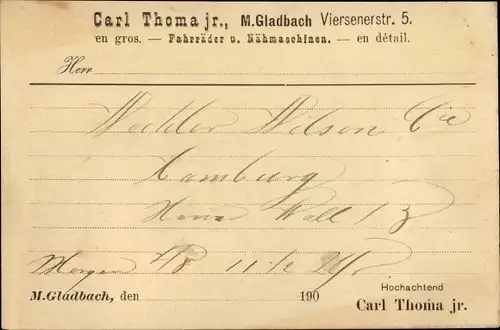 Carl Thoma jr., M.Gladbach Viersenerstr. 5.
en gros. — Fahrräder u. Nähmaschinen. — en détail.
Herr
Wilson Cie
Hamburg
Wall
Morgen 11½
M.Gladbach, den 190
Hochachtend
Carl Thoma jr.